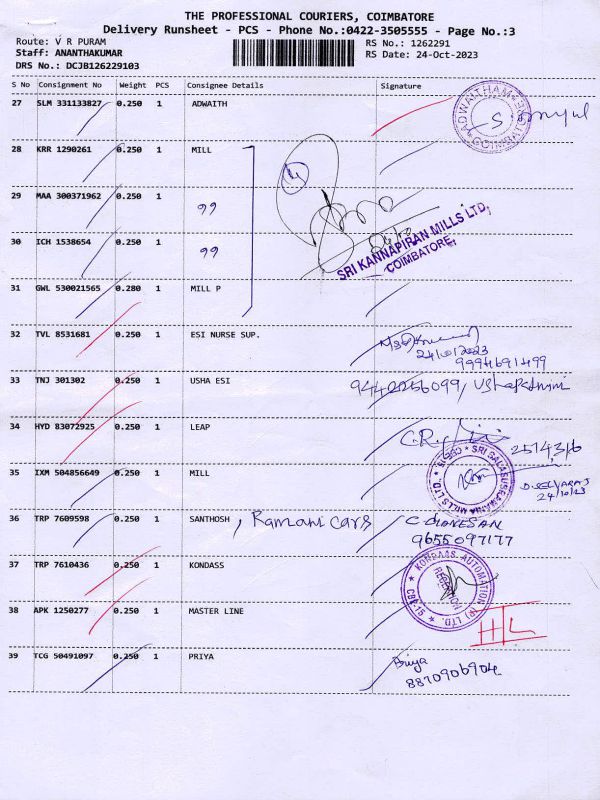 THE PROFESSIONAL COURIERS, COIMBATORE
Delivery Runsheet - PCS - Phone No.:0422-3505555 - Page No.:3
Route: V R PURAM
RS No.: 1262291
Staff: ANANTHAKUMAR
RS Date: 24-Oct-2023
DRS No.: DCJB126229103
S No Consignment No Weight PCS Consignee Details Signature
27 SLM 331133827 0.250 1 ADWAITH
ADWAITHAM COIMBATORE
28 KRR 1290261 0.250 1 MILL
4
29 MAA 300371962 0.250 1 99
SRI KANNAPIRAN MILLS LTD,
COIMBATORE,
30 ICH 1538654 0.250 1 99
31 GWL 530021565 0.280 1 MILL P
32 TVL 8531681 0.250 1 ESI NURSE SUP.
24/10/2023
9994691499
33 TNJ 301302 0.250 1 USHA ESI
9442256099,
34 HYD 83072925 0.250 1 LEAP
C.R.
35 IXM 504856649 0.250 1 MILL
D.SELVARAJ
24/10/23
36 TRP 7609598 0.250 1 SANTHOSH , Ramani cars
9655097177
37 TRP 7610436 0.250 1 KONDASS
KONDAAS AUTOMATION (P) LTD. CBE-15
RECEPTION
38 APK 1250277 0.250 1 MASTER LINE
39 TCG 50491097 0.250 1 PRIYA
Priya
8870906904